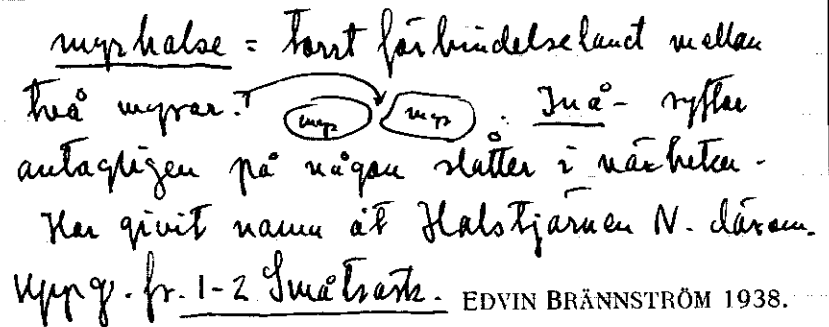 myrhalse = torrt förbindelseland mellan
två myrar. myr myr . Inå- syftar
antagligen på någon slåtter i närheten.
Har givit namn åt Halstjärnen N. därom.
Uppg. fr. 1-2 Småträsk. EDVIN BRÄNNSTRÖM 1938.